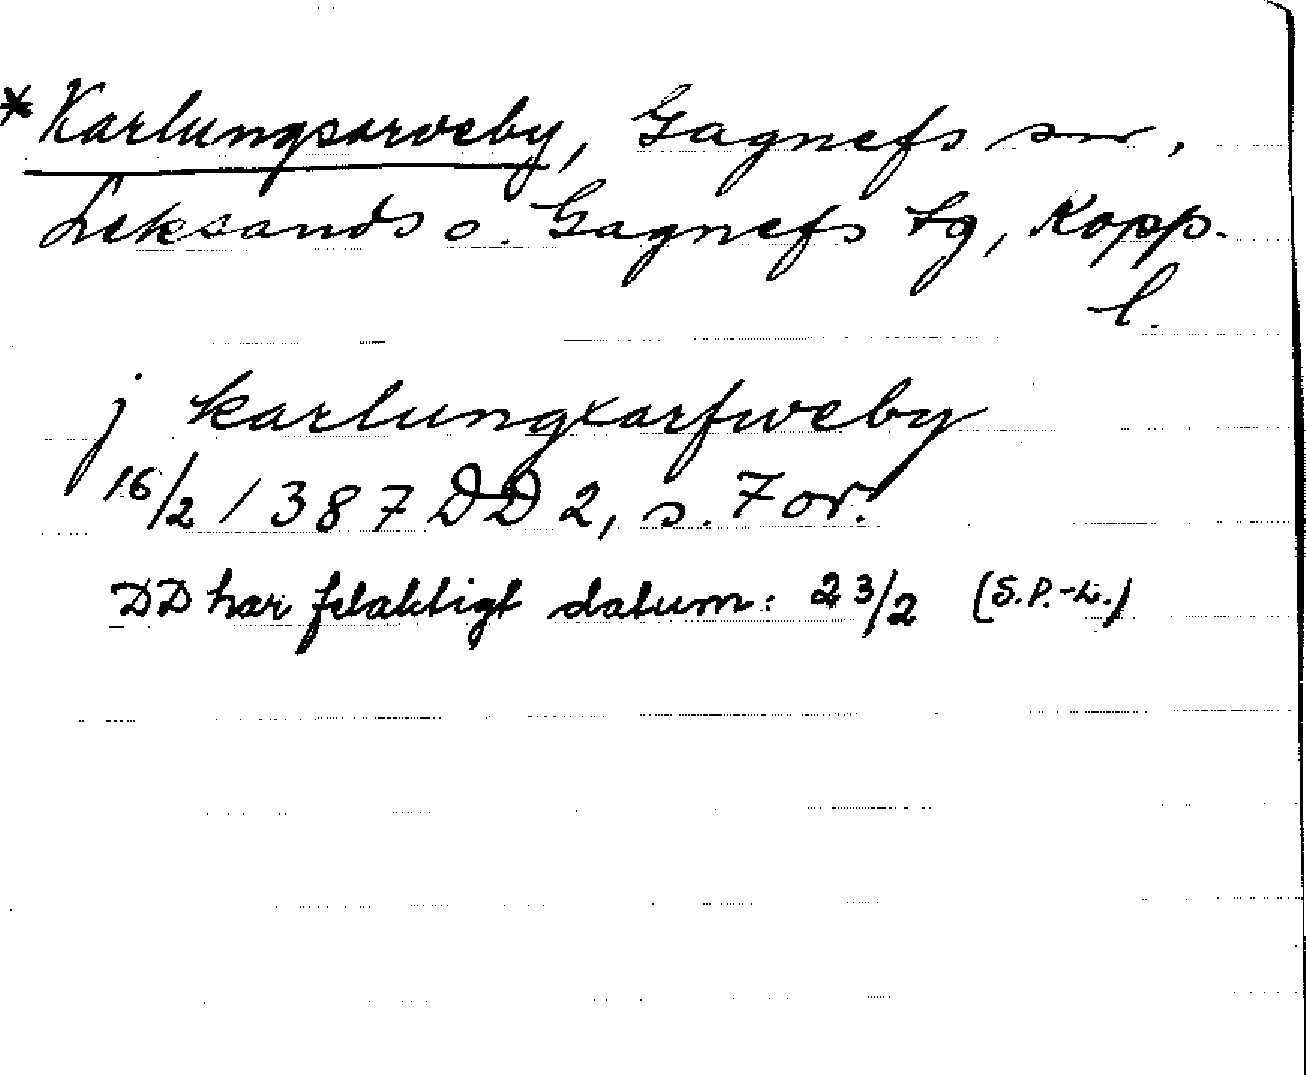 * Karlungsarveby, Gagnefs sn,
Leksands o. Gagnefs tg, Kopp.
l.
j karlungxarfweby
16/2 1387 DD 2, s. 7 or.
DD har felaktigt datum: 23/2 (S.P.-L.)